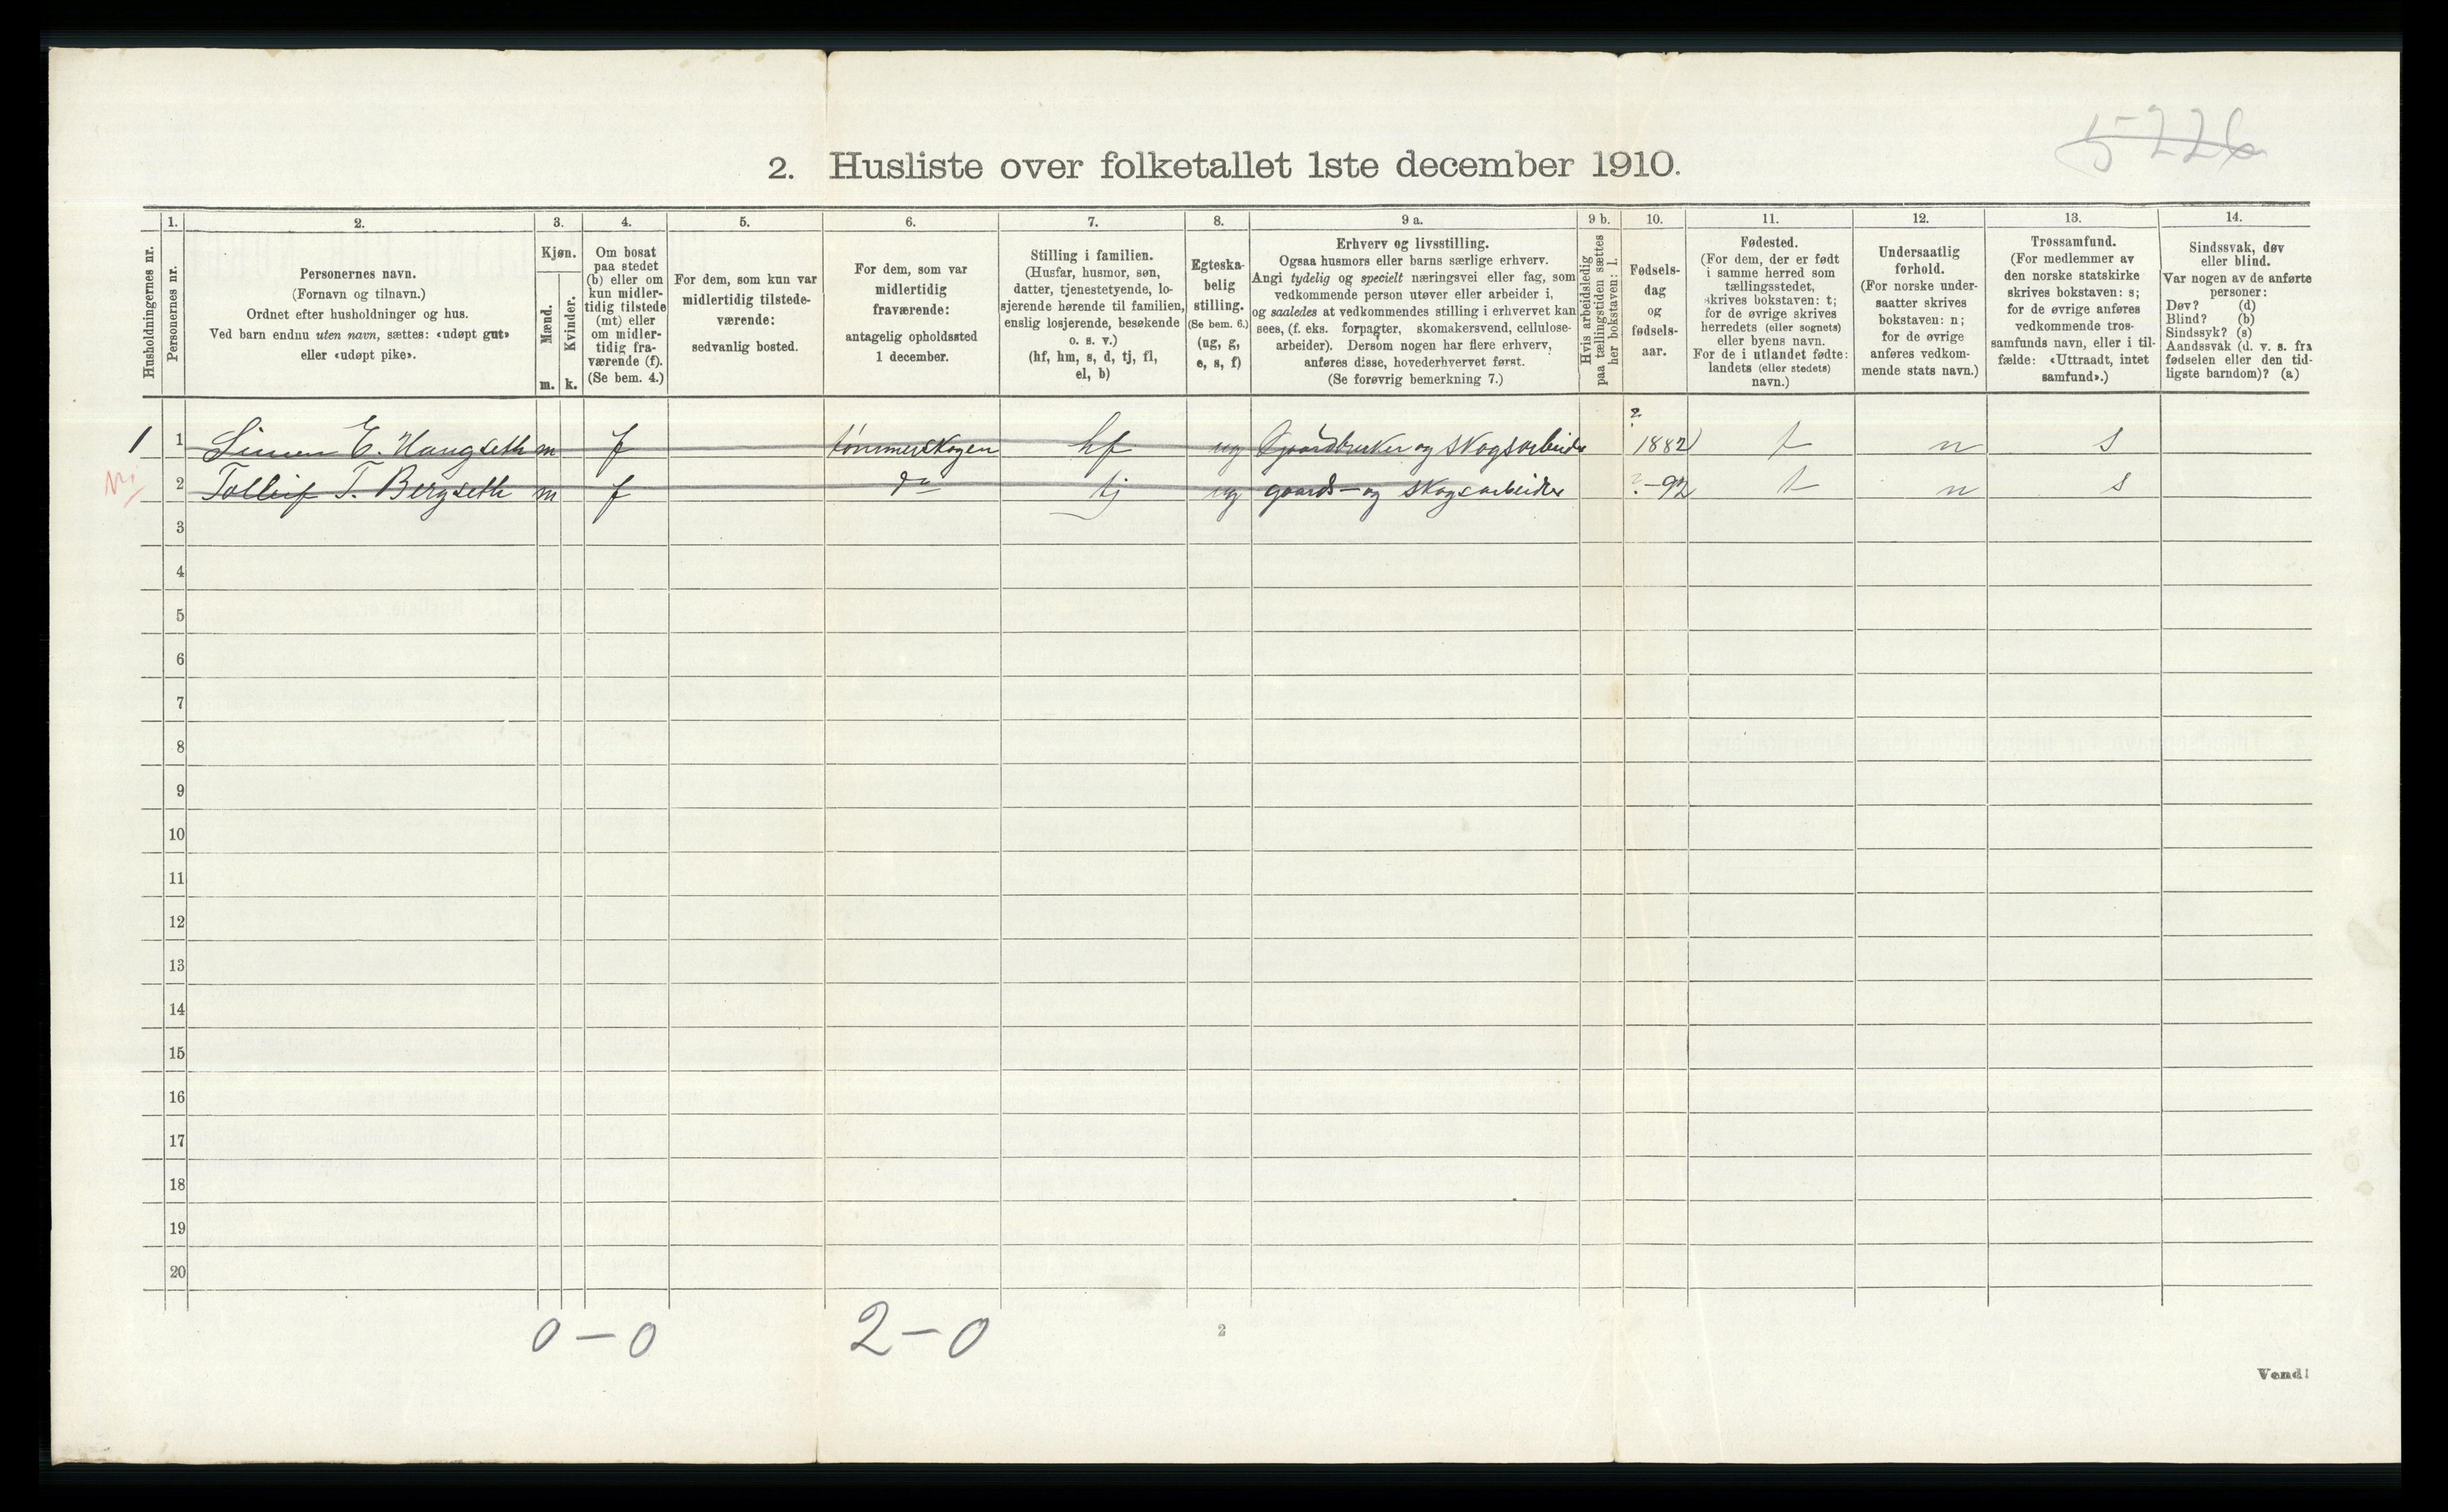 5-226
2. Husliste over folketallet 1ste december 1910.
1. 2. 3. 4. 5. 6. 7. 8. 9 a. 9 b. 10. 11. 12. 13. 14.
Husholdningernes nr.
Personernes nr.
Personernes navn.
(Fornavn og tilnavn.)
Ordnet efter husholdninger og hus.
Ved barn endnu uten navn, sættes: «udøpt gut»
eller «udøpt pike».
Kjøn.
Mænd.
Kvinder.
m. k.
Om bosat
paa stedet
(b) eller om
kun midler-
tidig tilstede
(mt) eller
om midler-
tidig fra-
værende (f).
(Se bem. 4.)
For dem, som kun var
midlertidig tilstede-
værende:
sedvanlig bosted.
For dem, som var
midlertidig
fraværende:
antagelig opholdssted
1 december.
Stilling i familien.
(Husfar, husmor, søn,
datter, tjenestetyende, lo-
sjerende hørende til familien,
enslig losjerende, besøkende
o. s. v.)
(hf, hm, s, d, tj, fl,
el, b)
Egteska-
belig
stilling.
(Se bem. 6.)
(ug, g,
e, s, f)
Erhverv og livsstilling.
Ogsaa husmors eller barns særlige erhverv.
Angi tydelig og specielt næringsvei eller fag, som
vedkommende person utøver eller arbeider i,
og saaledes at vedkommendes stilling i erhvervet kan
sees, (f. eks. forpagter, skomakersvend, cellulose-
arbeider). Dersom nogen har flere erhverv,
anføres disse, hovederhvervet først.
(Se forøvrig bemerkning 7.)
Hvis arbeidsledig
paa tællingstiden sættes
her bokstaven: l.
Fødsels-
dag
og
fødsels-
aar.
Fødested.
(For dem, der er født
i samme herred som
tællingsstedet,
skrives bokstaven: t;
for de øvrige skrives
herredets (eller sognets)
eller byens navn.
For de i utlandet fødte:
landets (eller stedets)
navn.)
Undersaatlig
forhold.
(For norske under-
saatter skrives
bokstaven: n;
for de øvrige
anføres vedkom-
mende stats navn.)
Trossamfund.
(For medlemmer av
den norske statskirke
skrives bokstaven: s;
for de øvrige anføres
vedkommende tros-
samfunds navn, eller i til-
fælde: «Uttraadt, intet
samfund».)
Sindssvak, døv
eller blind.
Var nogen av de anførte
personer:
Døv? (d)
Blind? (b)
Sindssyk? (s)
Aandssvak (d. v. s. fra
fødselen eller den tid-
ligste barndom)? (a)
1 1 Simen E. Haugseth m f tømmerskogen hf ug Gaardbruker og skogsarbeider ? 1882 t n s
2 Tolleif T. Bergseth m f do tj ug gaards- og skogsarbeider ?-92 t n s
3
4
5
6
7
8
9
10
11
12
13
14
15
16
17
18
19
20
0-0 2-0
2
Vend!